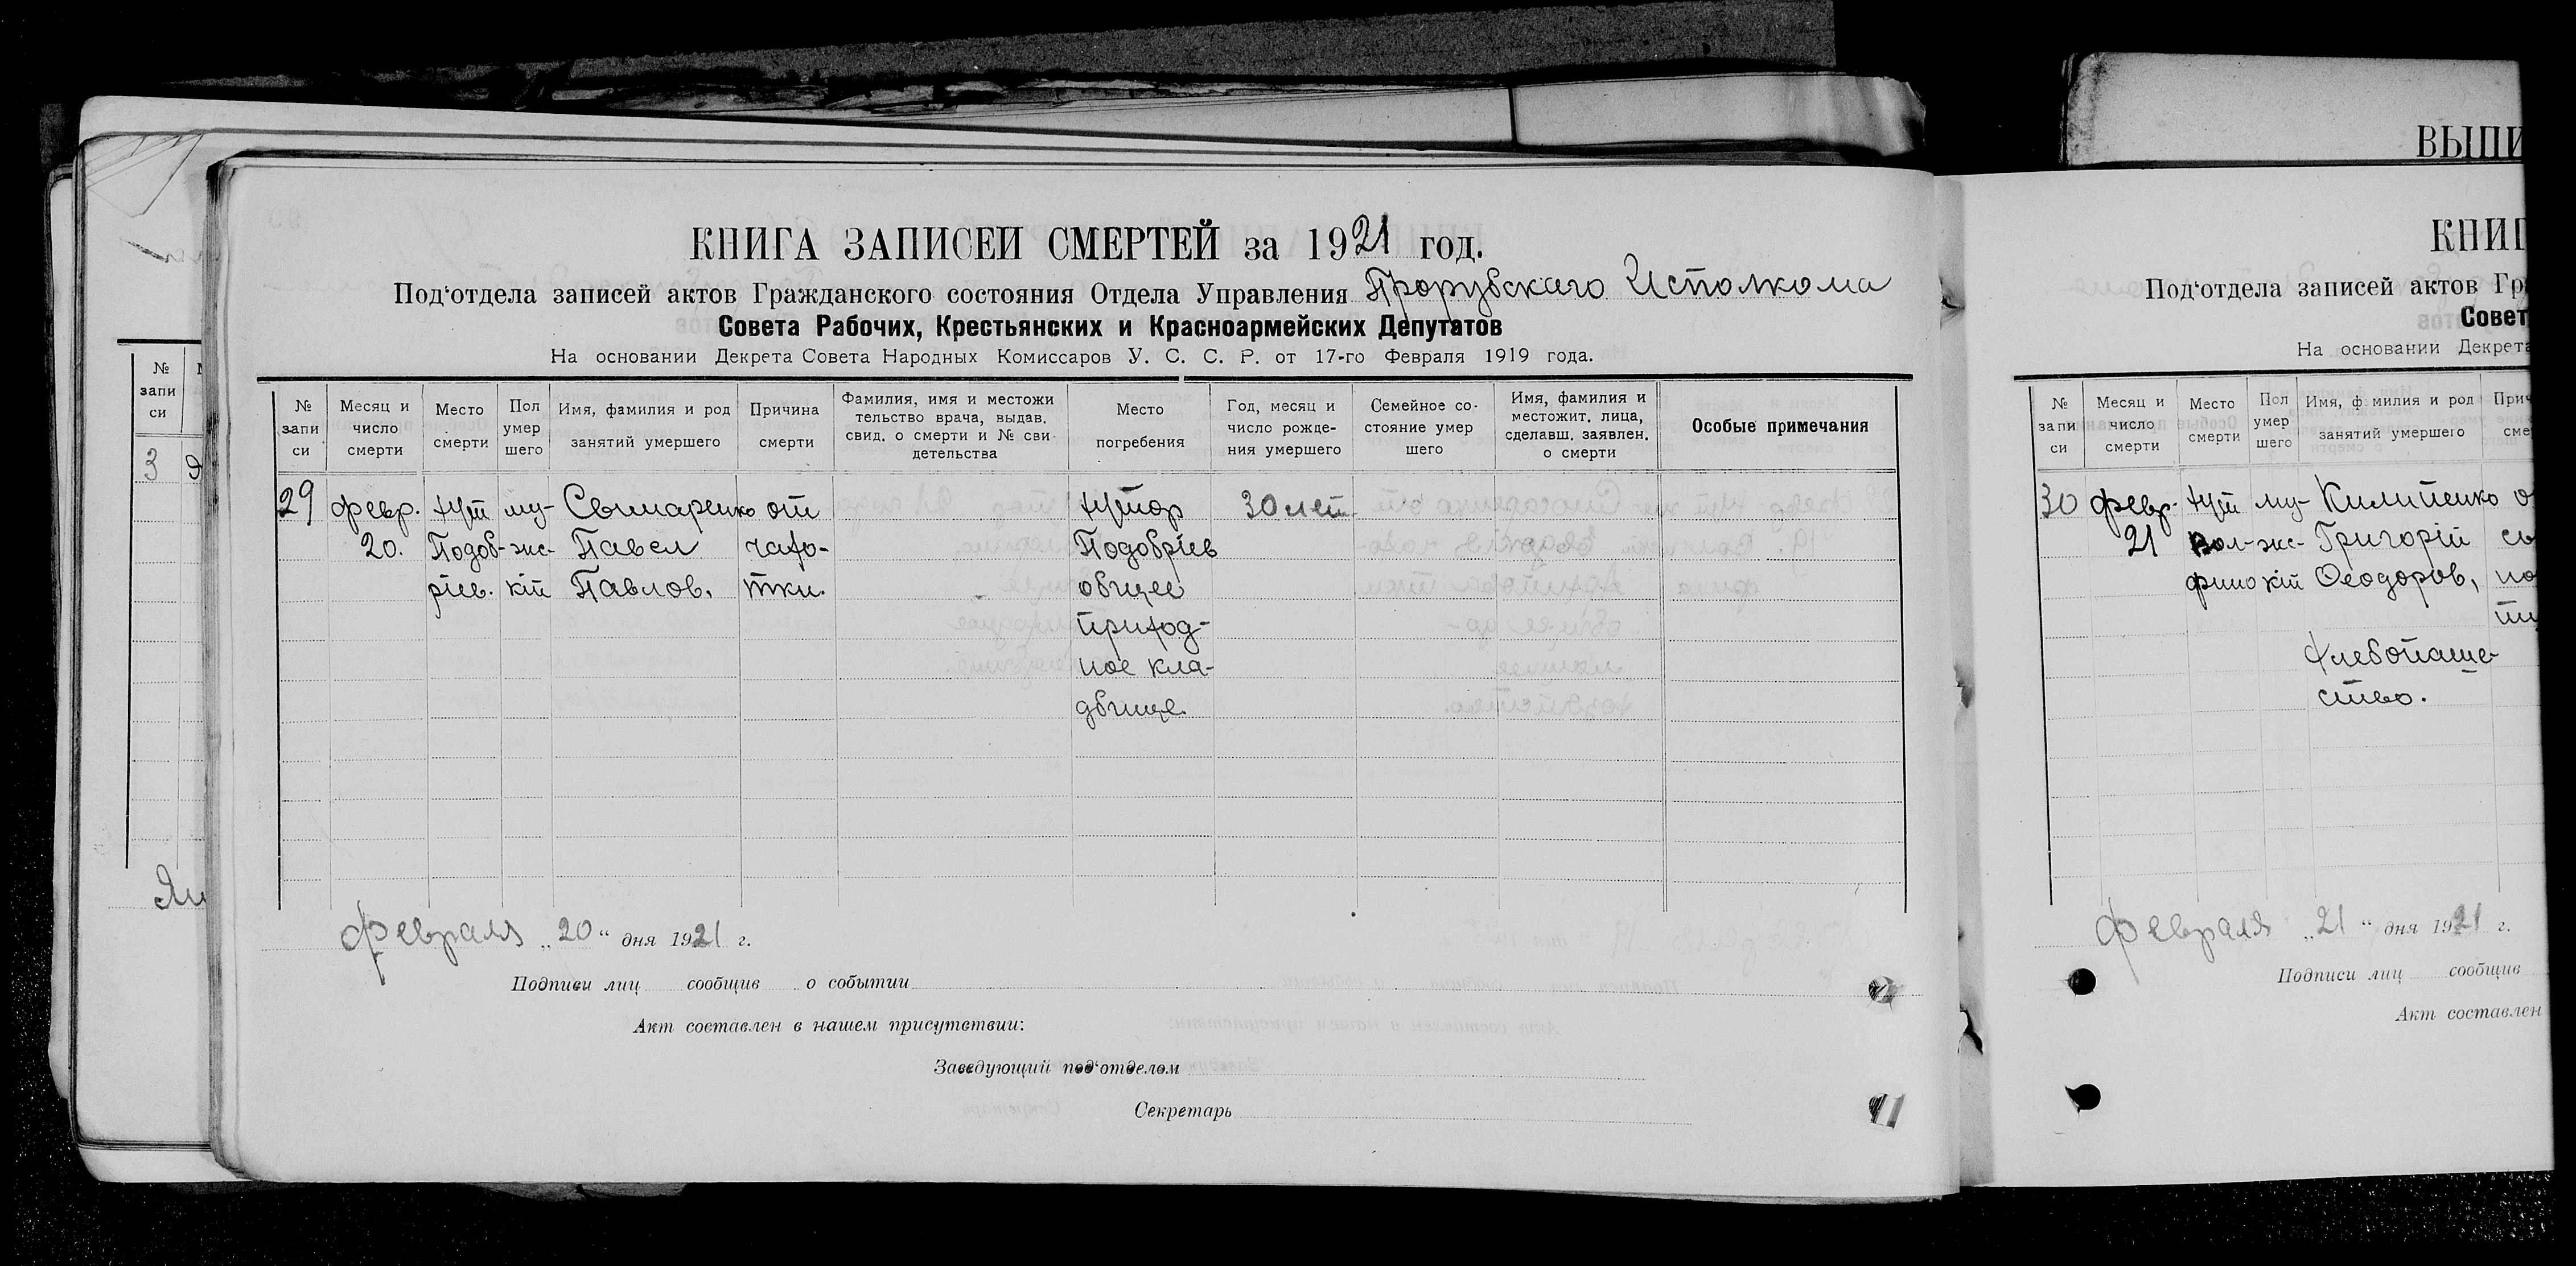 КНИГА ЗАПИСЕЙ СМЕРТЕЙ за 1921 год.
Под‘отдела записей актов Гражданского состояния Отдела Управления Прорубскаго Исполкома
Совета Рабочих, Крестьянских и Красноармейских Депутатов
На основании Декрета Совета Народных Комиссаров У. С. С. Р. от 17-го Февраля 1919 года.
№ запи си
Месяц и число смерти
Место смерти
Пол умер шего
Имя, фамилия и род занятий умершего
Причина смерти
Фамилия, имя и местожи тельство врача, выдав. свид. о смерти и № сви детельства
Место погребения
Год, месяц и число рожде- ния умершего
Семейное со- стояние умер шего
Имя, фамилия и местожит. лица, сделавш. заявлен. о смерти
Особые примечания
29 февр. хут му- Свинаренко от хутор 30 лет
20. Подоб- жс- Павел чахо- Подобріев
ріев. кій Павлов, тки. общее
приход-
ное кла-
дбище.
Февраля „20“ дня 1921 г.
Подписи лиц сообщив о событии
Акт составлен в нашем присутствии:
Заведующий под‘отделом
Секретарь
№ запи си
3
ВЫПИ
КНИГ
Под‘отдела записей актов Гр
Совет
На основании Декрета
№ запи си
Месяц и число смерти
Место смерти
Пол умер шего
Имя, фамилия и род занятий умершего
Прич сме
30 февр. хут му- Килипенко о
21 жс- Григорій
кій Феодоров,
хлебопаше-
ство.
Февраля „21“ дня 1921 г.
Подписи лиц сообщив
Акт составлен